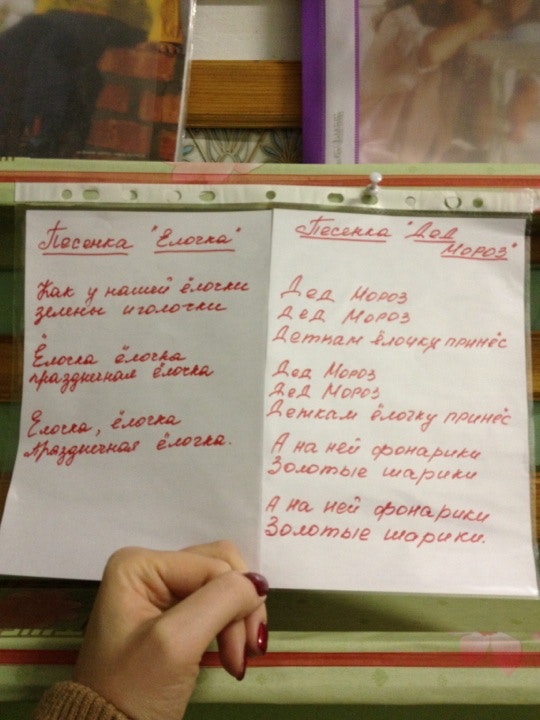 Песенка "Елочка"
Как у нашей ёлочки
зелены иголочки
Ёлочка ёлочка
праздничная ёлочка
Елочка, ёлочка
Праздничная ёлочка.
Песенка "Дед
Мороз"
Дед Мороз
Дед Мороз
Деткам ёлочку принёс
Дед Мороз
Дед Мороз
Деткам ёлочку принёс
А на ней фонарики
Золотые шарики
А на ней фонарики
Золотые шарики.